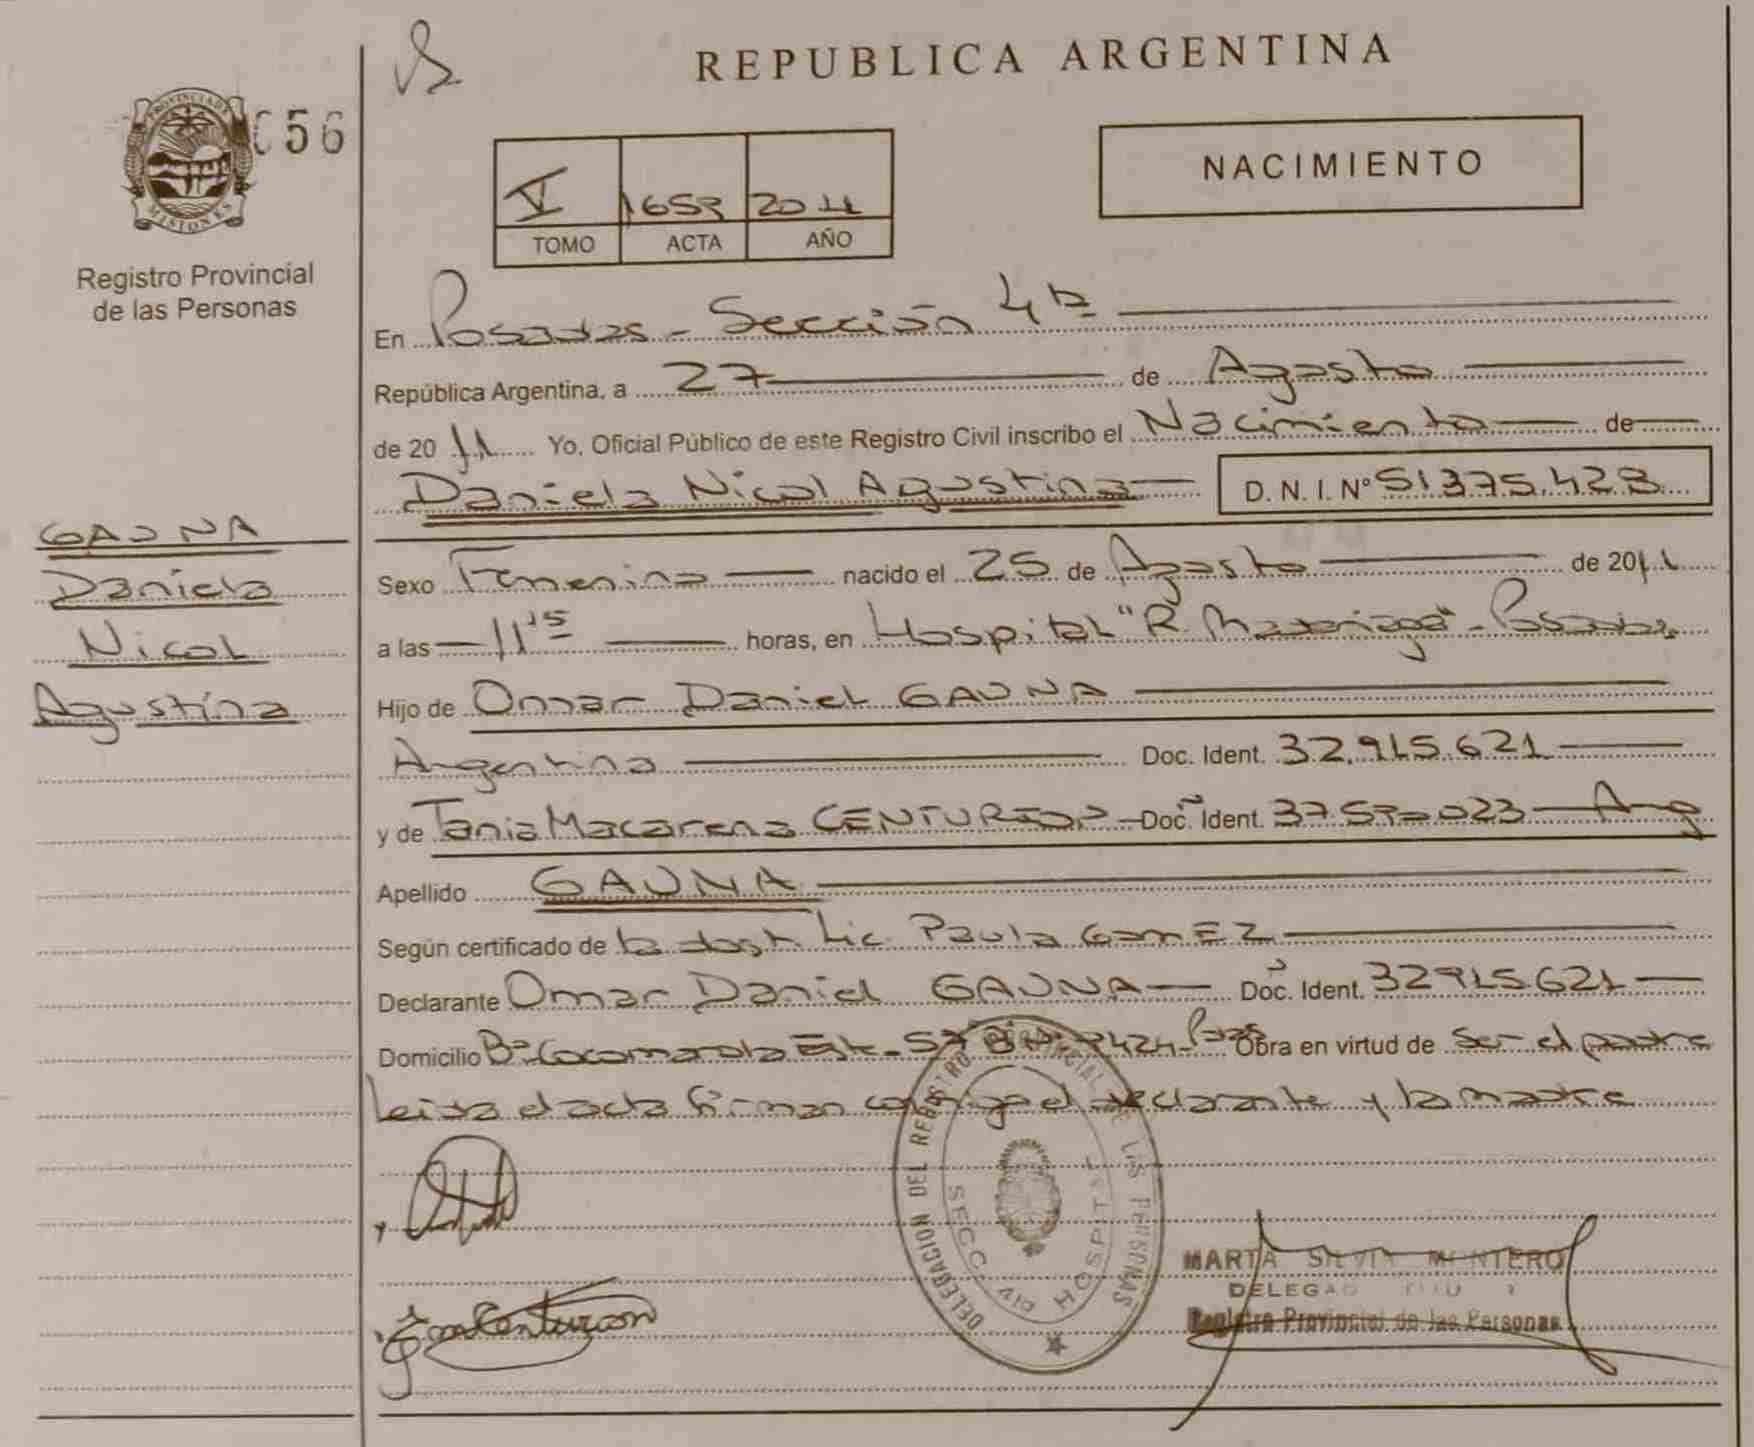 REPUBLICA ARGENTINA
PROVINCIA DE MISIONES
056
Registro Provincial
de las Personas
V 1653 2011
TOMO ACTA AÑO
NACIMIENTO
En Posadas - Sección 4ta
República Argentina, a 27 de Agosto
de 2011 Yo, Oficial Público de este Registro Civil inscribo el Nacimiento de
Daniela Nicol Agustina D.N.I. Nº 51375.423
GAUNA
Daniela
Nicol
Agustina
Sexo Femenino nacido el 25 de Agosto de 2011
a las 11 15 horas, en Hospital "R. Madariaga" - Posadas
Hijo de Omar Daniel GAUNA
Argentina Doc. Ident. 32.915.621
y de Tania Macarena CENTURION Doc. Ident. Arg
Apellido GAUNA
Según certificado de la Lic Paula GomEZ
Declarante Omar Daniel GAUNA Doc. Ident. 32915621
Domicilio Bº Cocomarola Este - Obra en virtud de ser el padre
Leida el acta firman conmigo el declarante y la madre
DELEGACION DEL REGISTRO PROVINCIAL DE LAS PERSONAS
SECC. HOSPITAL
MARTA SILVIA MONTERO
Registro Provincial de las Personas
Centurion